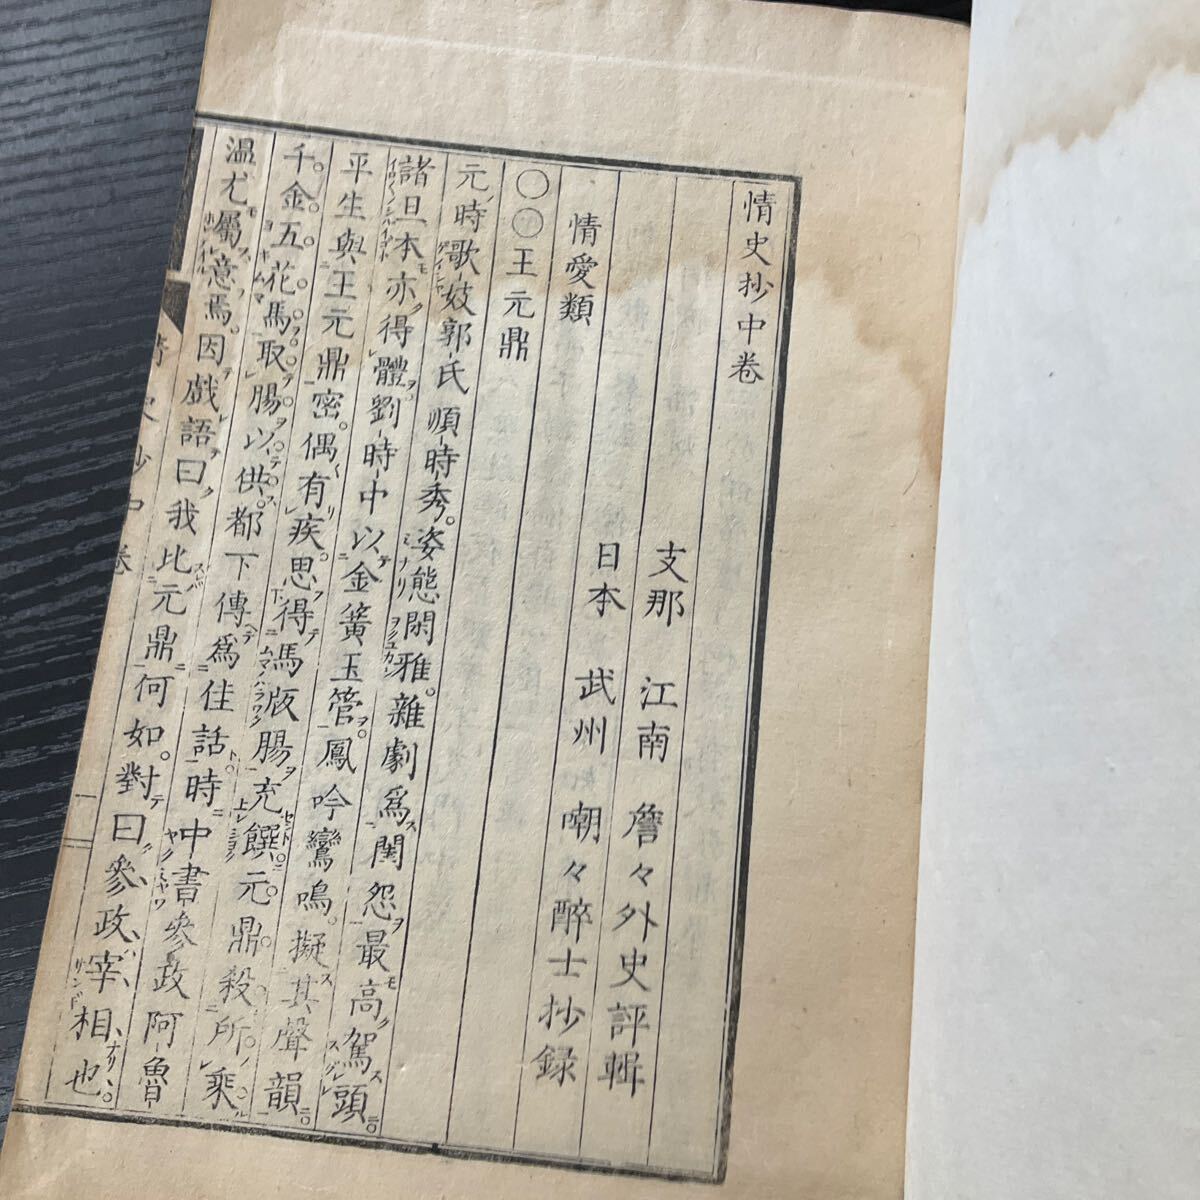 情史抄中卷
支那 江南 詹々外史評輯
日本 武州 嘲々醉士抄録
情愛類
〇〇王元鼎
元時歌妓郭氏順時秀。姿態閑雅。雜劇爲閨怨最高。駕頭
諸旦本亦得體。劉時中以金簧玉管。鳳吟鸞鳴。擬其聲韻。
平生與王元鼎密。偶有疾。思得馬版腸充饌。元鼎殺所乘
千金五花馬。取腸以供。都下傳爲佳話。時中書參政阿魯
溫尤屬意焉。因戲語曰。我比元鼎何如。對曰。參政宰相也
情史抄中卷 一